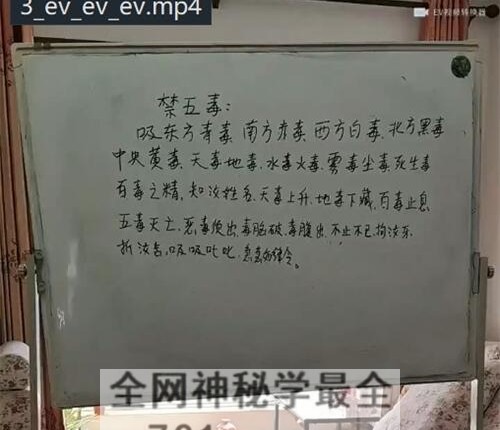 3_ev_ev_ev.mp4
EV视频转换器
禁五毒：
吸东方青毒、南方赤毒、西方白毒、北方黑毒
中央黄毒、天毒地毒、水毒火毒、雾毒尘毒、死生毒
百毒之精、知汝姓名、天毒上升、地毒下藏、百毒止息
五毒灭亡、恶毒须出、毒脑破、毒腹出、不止不已、拘汝
折汝舌、吸吸叱叱、急急如律令。
全网神秘学最全